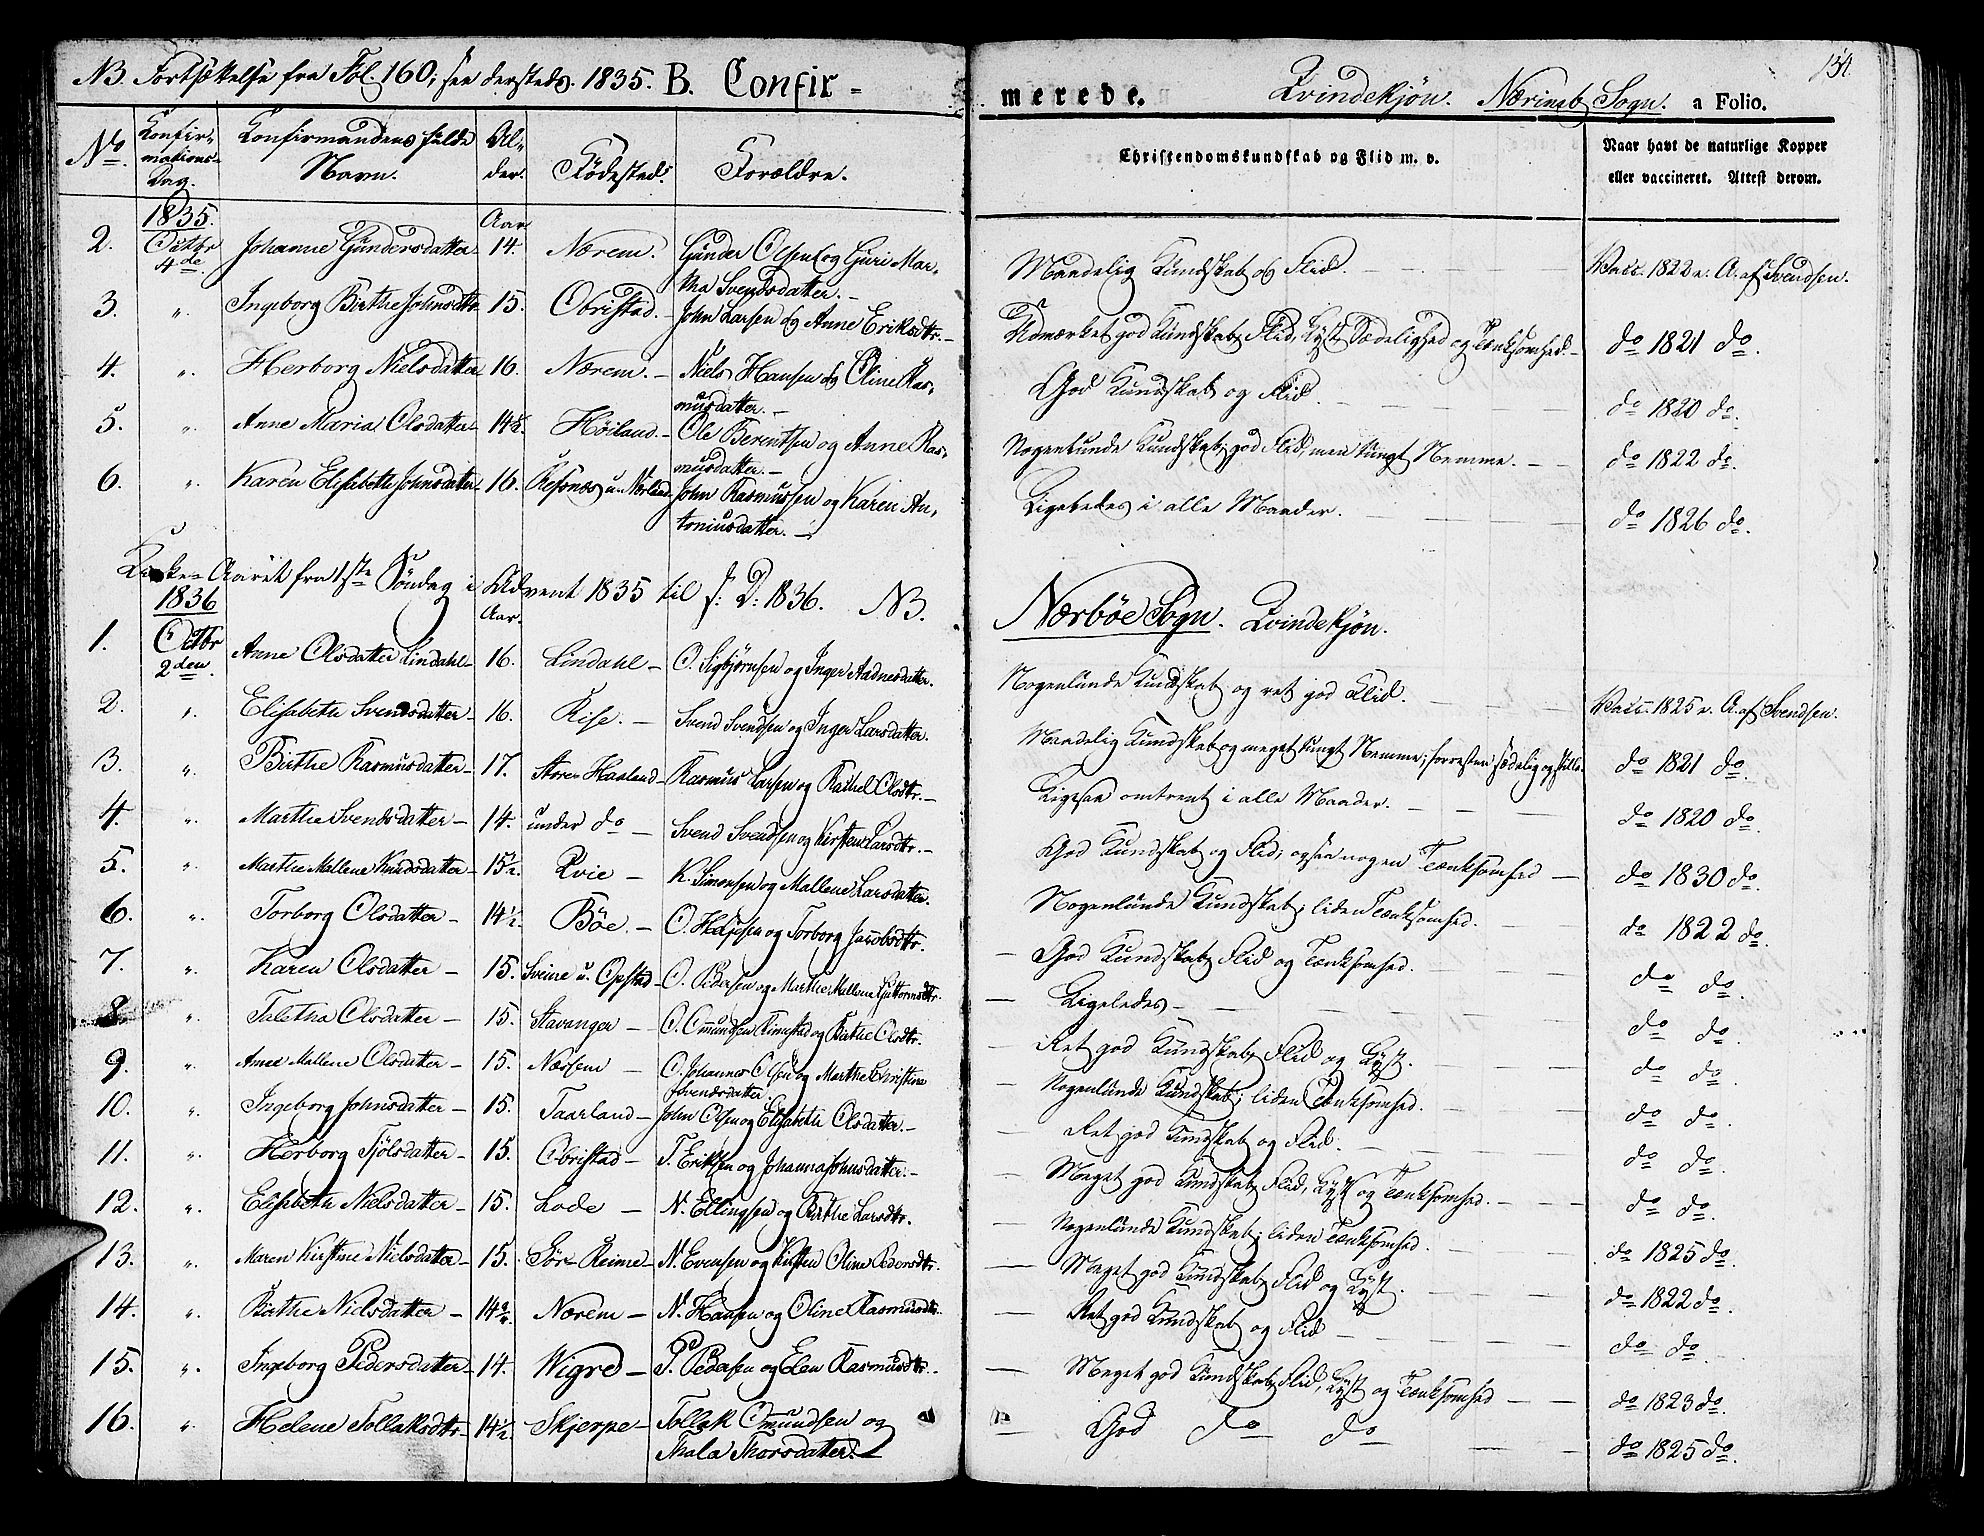 NB. Fortsættelse fra Fol. 160, see dersteds. 1835. B. Confir-
No. Konfirmations Dag. Konfirmandens fulde Navn. Alder. Födested. Forældre.
1835. Aar.
2. Octbr 4de. Johanne Gundersdatter 14. Nærem. Gunder Olsen og Guri Mar-
tha Svendsdatter. -
3. ". Ingeborg Birthe Johnsdtr 15. Obristad. - John Larsen og Anne Eriksdtr. -
4. ". Herborg Nielsdatter 16. Nærem. - Niels Hansen og Oline Ras-
musdatter. -
5. ". Anne Maria Olsdatter 14½. Höiland. - Ole Berentsen og Anne Ras-
musdatter. -
6. ". Karen Elisabeth Johnsdatter 16. u. Nærland John Rasmussen og Karen An-
toniusdatter. -
Kirke-Aaret fra 1ste Söndag i Advent 1835 til s: D: 1836. NB.
1836 Aar.
1. Octbr 2den. Anne Olsdatter Lindahl - 16. Lindahl - O. Sigbjörnsen og Inger Aadnesdatter.
2. ". Elisabeth Svendsdatter - 16. Rise. - Svend Svendsen og Inger Larsdatter.
3. ". Birthe Rasmusdatter - 17. Store Haaland - Rasmus Larsen og Rachel Olsdtr. -
4. ". Marthe Svendsdatter - 14. under do - Svend Svendsen og Kirsten Larsdtr. -
5. ". Marthe Mallene Knudsdatter - 15½. Qvie - K. Simonsen og Mallene Larsdatter.
6. ". Torborg Olsdatter - 14½. Böe. - O. og Torborg Jacobsdtr.
7. ". Karen Olsdatter - 15. Sveine u. Opstad - O. Pedersen og Marthe Mallene Guttormsdtr.
8. ". Taletha Olsdatter - 15. Stavanger - O. Omundsen Fimestad og Birthe Olsdtr.
9. ". Anne Mallene Olsdatter - 15. Nærem - O. Johannes Olsen og Marthe Christine
Svendsdatter.
10. ". Ingeborg Johnsdatter - 15. Taarland - John Olsen og Elisabeth Olsdatter. -
11. ". Herborg Tjölsdatter - 15. Obristad - T. Eriksen og Johanna Johnsdatter. -
12. ". Elisabeth Nielsdatter - 15. Lode - N. Ellingsen og Birthe Larsdtr.
13. ". Maren Kirstine Nielsdatter - 15. Sör-Reime - N. Evensen og Kirsten Oline Pedersdtr.
14. ". Birthe Nielsdatter - 14¾. Nærem - N. Hansen og Oline Rasmusdtr.
15. ". Ingeborg Pedersdatter - 14. Wigre - P. Pedersen og Elen Rasmusdtr.
16. ". Helene Tollaksdtr - 14½. Skjerpe - Tollak Omundsen og
Thala Thorsdatter.
merede. Qvindekjön. Sogn. a Folio. 151.
Christendomskundskab og Flid m. v. Naar havt de naturlige Kopper
eller vaccineret. Attest derom.
Maadelig Kundskab og Flid. - Vacc. 1822 e. A. af Svendsen.
Udmærket god Kundskab, Flid, Lyst, Sædelighed og Tænksomhed. - do 1821 do.
God Kundskab og Flid. - do 1820 do.
Nogenlunde Kundskab, god Flid, men tungt Nemme. - do 1822 do.
Ligeledes i alle Maader. - do 1826 do.
Nærböe Sogn. Qvindekjön.
Nogenlunde Kundskab og ret god Flid. - Vacc. 1825 e. A. af Svendsen.
Maadelig Kundskab og meget tungt Nemme; forresten sædelig og stille. do 1821 do.
Ligesaa omtrent i alle Maader. - do 1820 do.
God Kundskab og Flid; ogsaa nogen Tænksomhed - do 1830 do.
Nogenlunde Kundskab; liden Tænksomhed. - do 1822 do.
God Kundskab, Flid og Tænksomhed. - do do.
Ligeledes - do do.
Ret god Kundskab, Flid og Lyst. - do do.
Nogenlunde Kundskab; liden Tænksomhed. - do do.
Ret god Kundskab og Flid. - do do.
Meget god Kundskab, Flid, Lyst og Tænksomhed. - do do.
Nogenlunde Kundskab; liden Tænksomhed. - do 1825 do.
Meget god Kundskab, Flid og Lyst. - do 1822 do.
Ret god Kundskab og Flid - do do.
Meget god Kundskab, Flid, Lyst og Tænksomhed - do 1823 do.
God do do - do 1825 do.